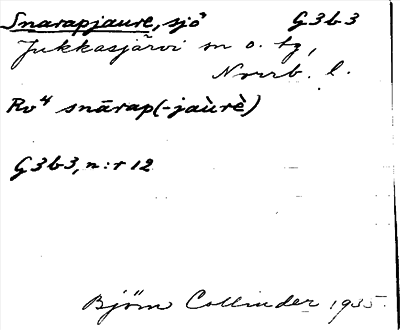 Snarapjaure, sjö G3b3
Jukkasjärvi sn o. tg,
Norrb. l.
Rv⁴ snārap(-jaùrè)
G3b3, n:r 12
Björn Collinder 1935.